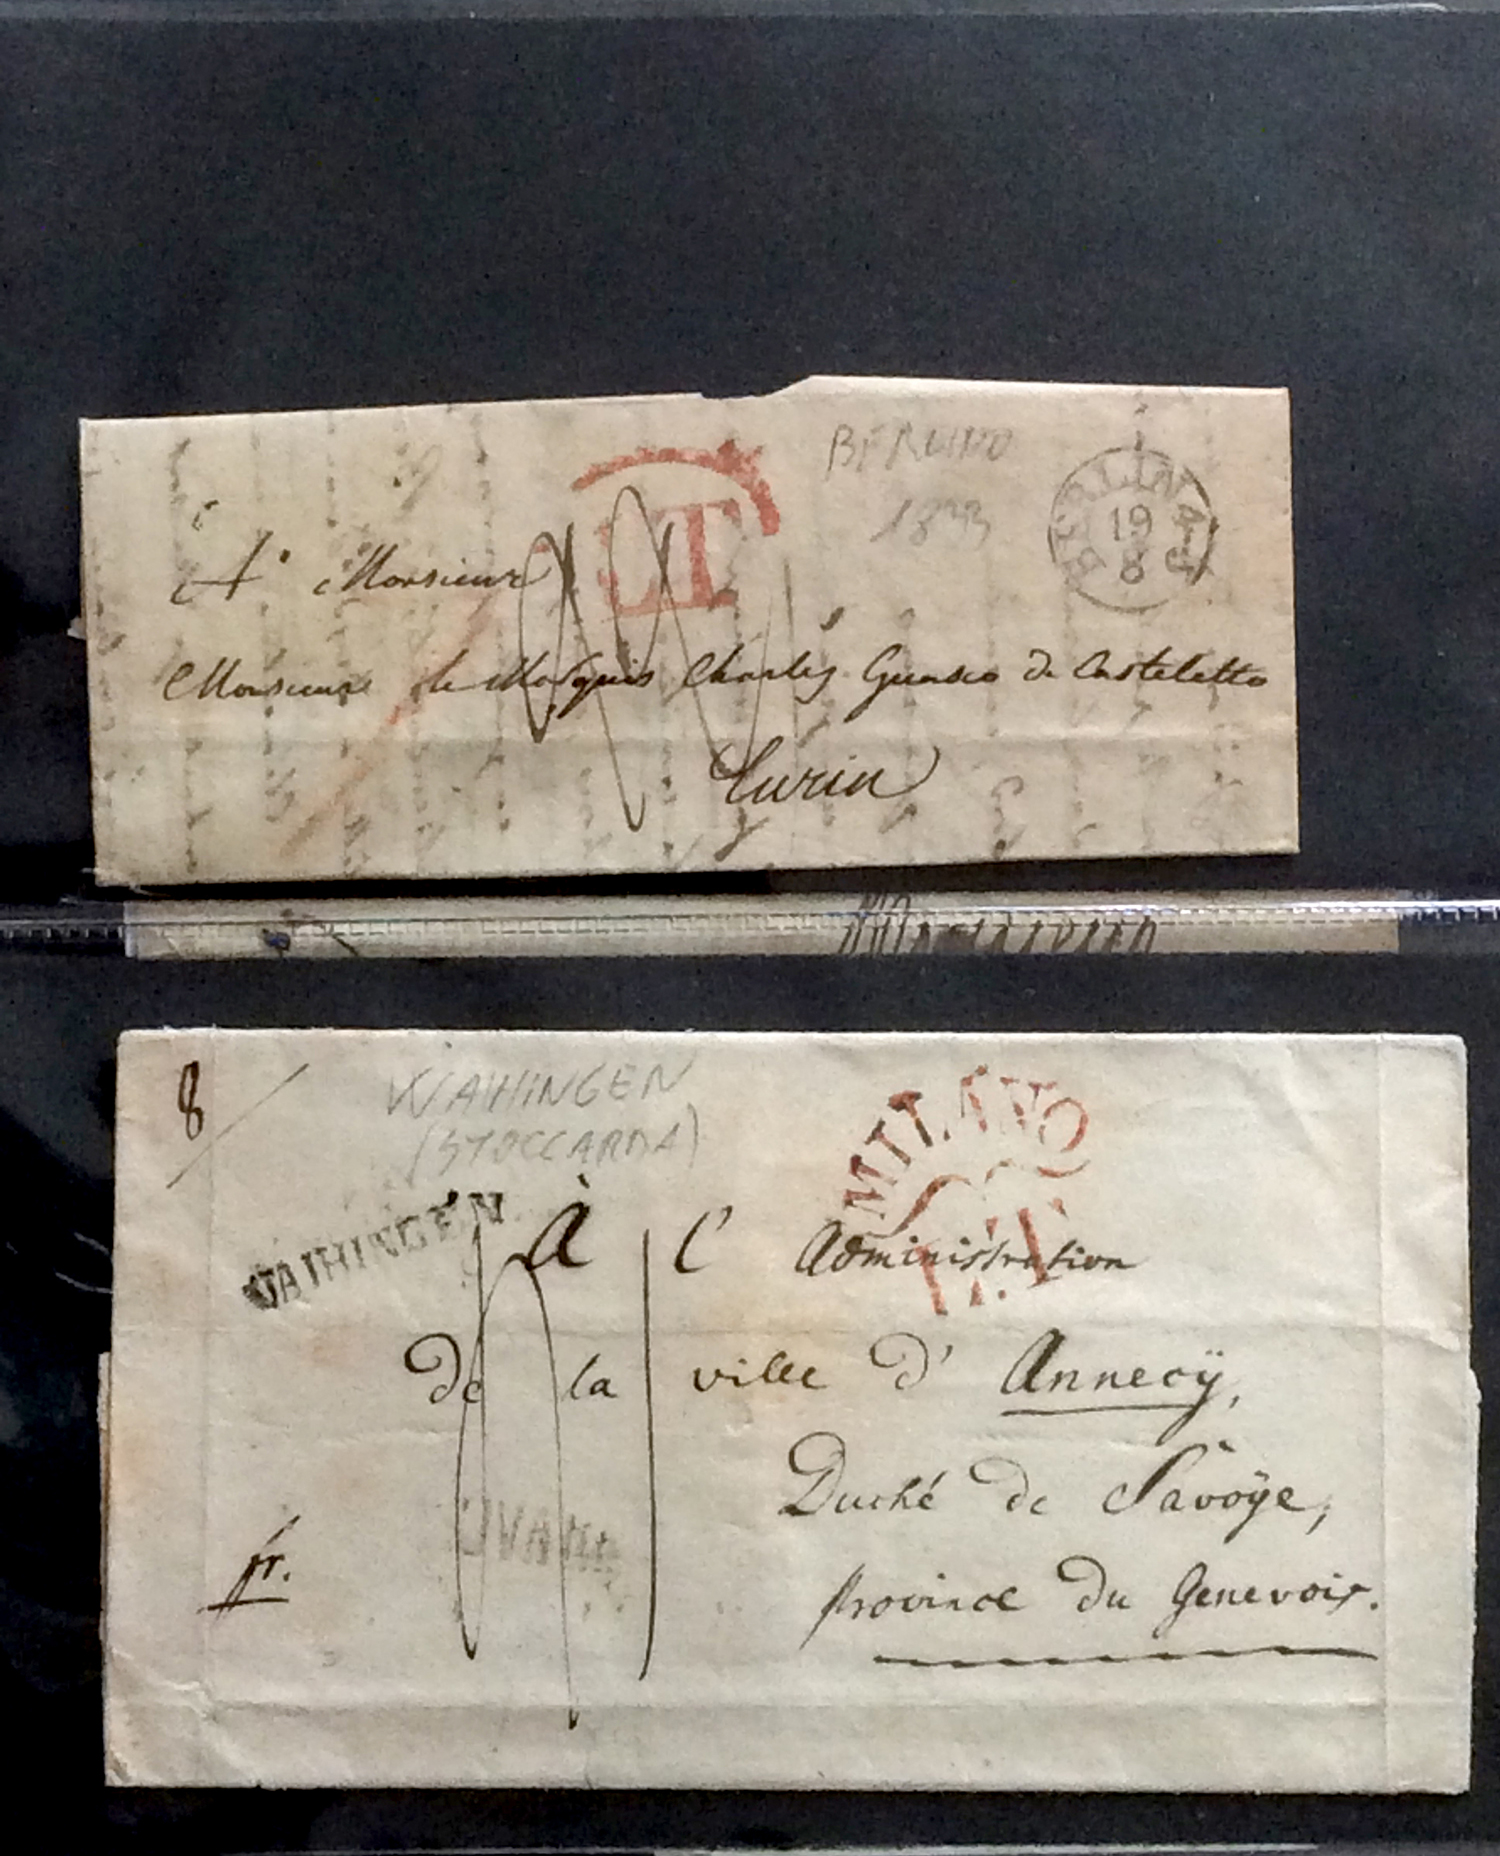 BERLINO
1833
BERLIN
19
8
LT
A Monsieur
Monsieur le Marquis Charles Guasco de Casteletto
Turin
8
WAIHINGEN
(STOCCARDA)
MILANO
L.T.
VAIHINGEN
À l' Administration
de la ville d' Annecÿ,
Duché de Savoÿe,
Province du Genevois.
fr.